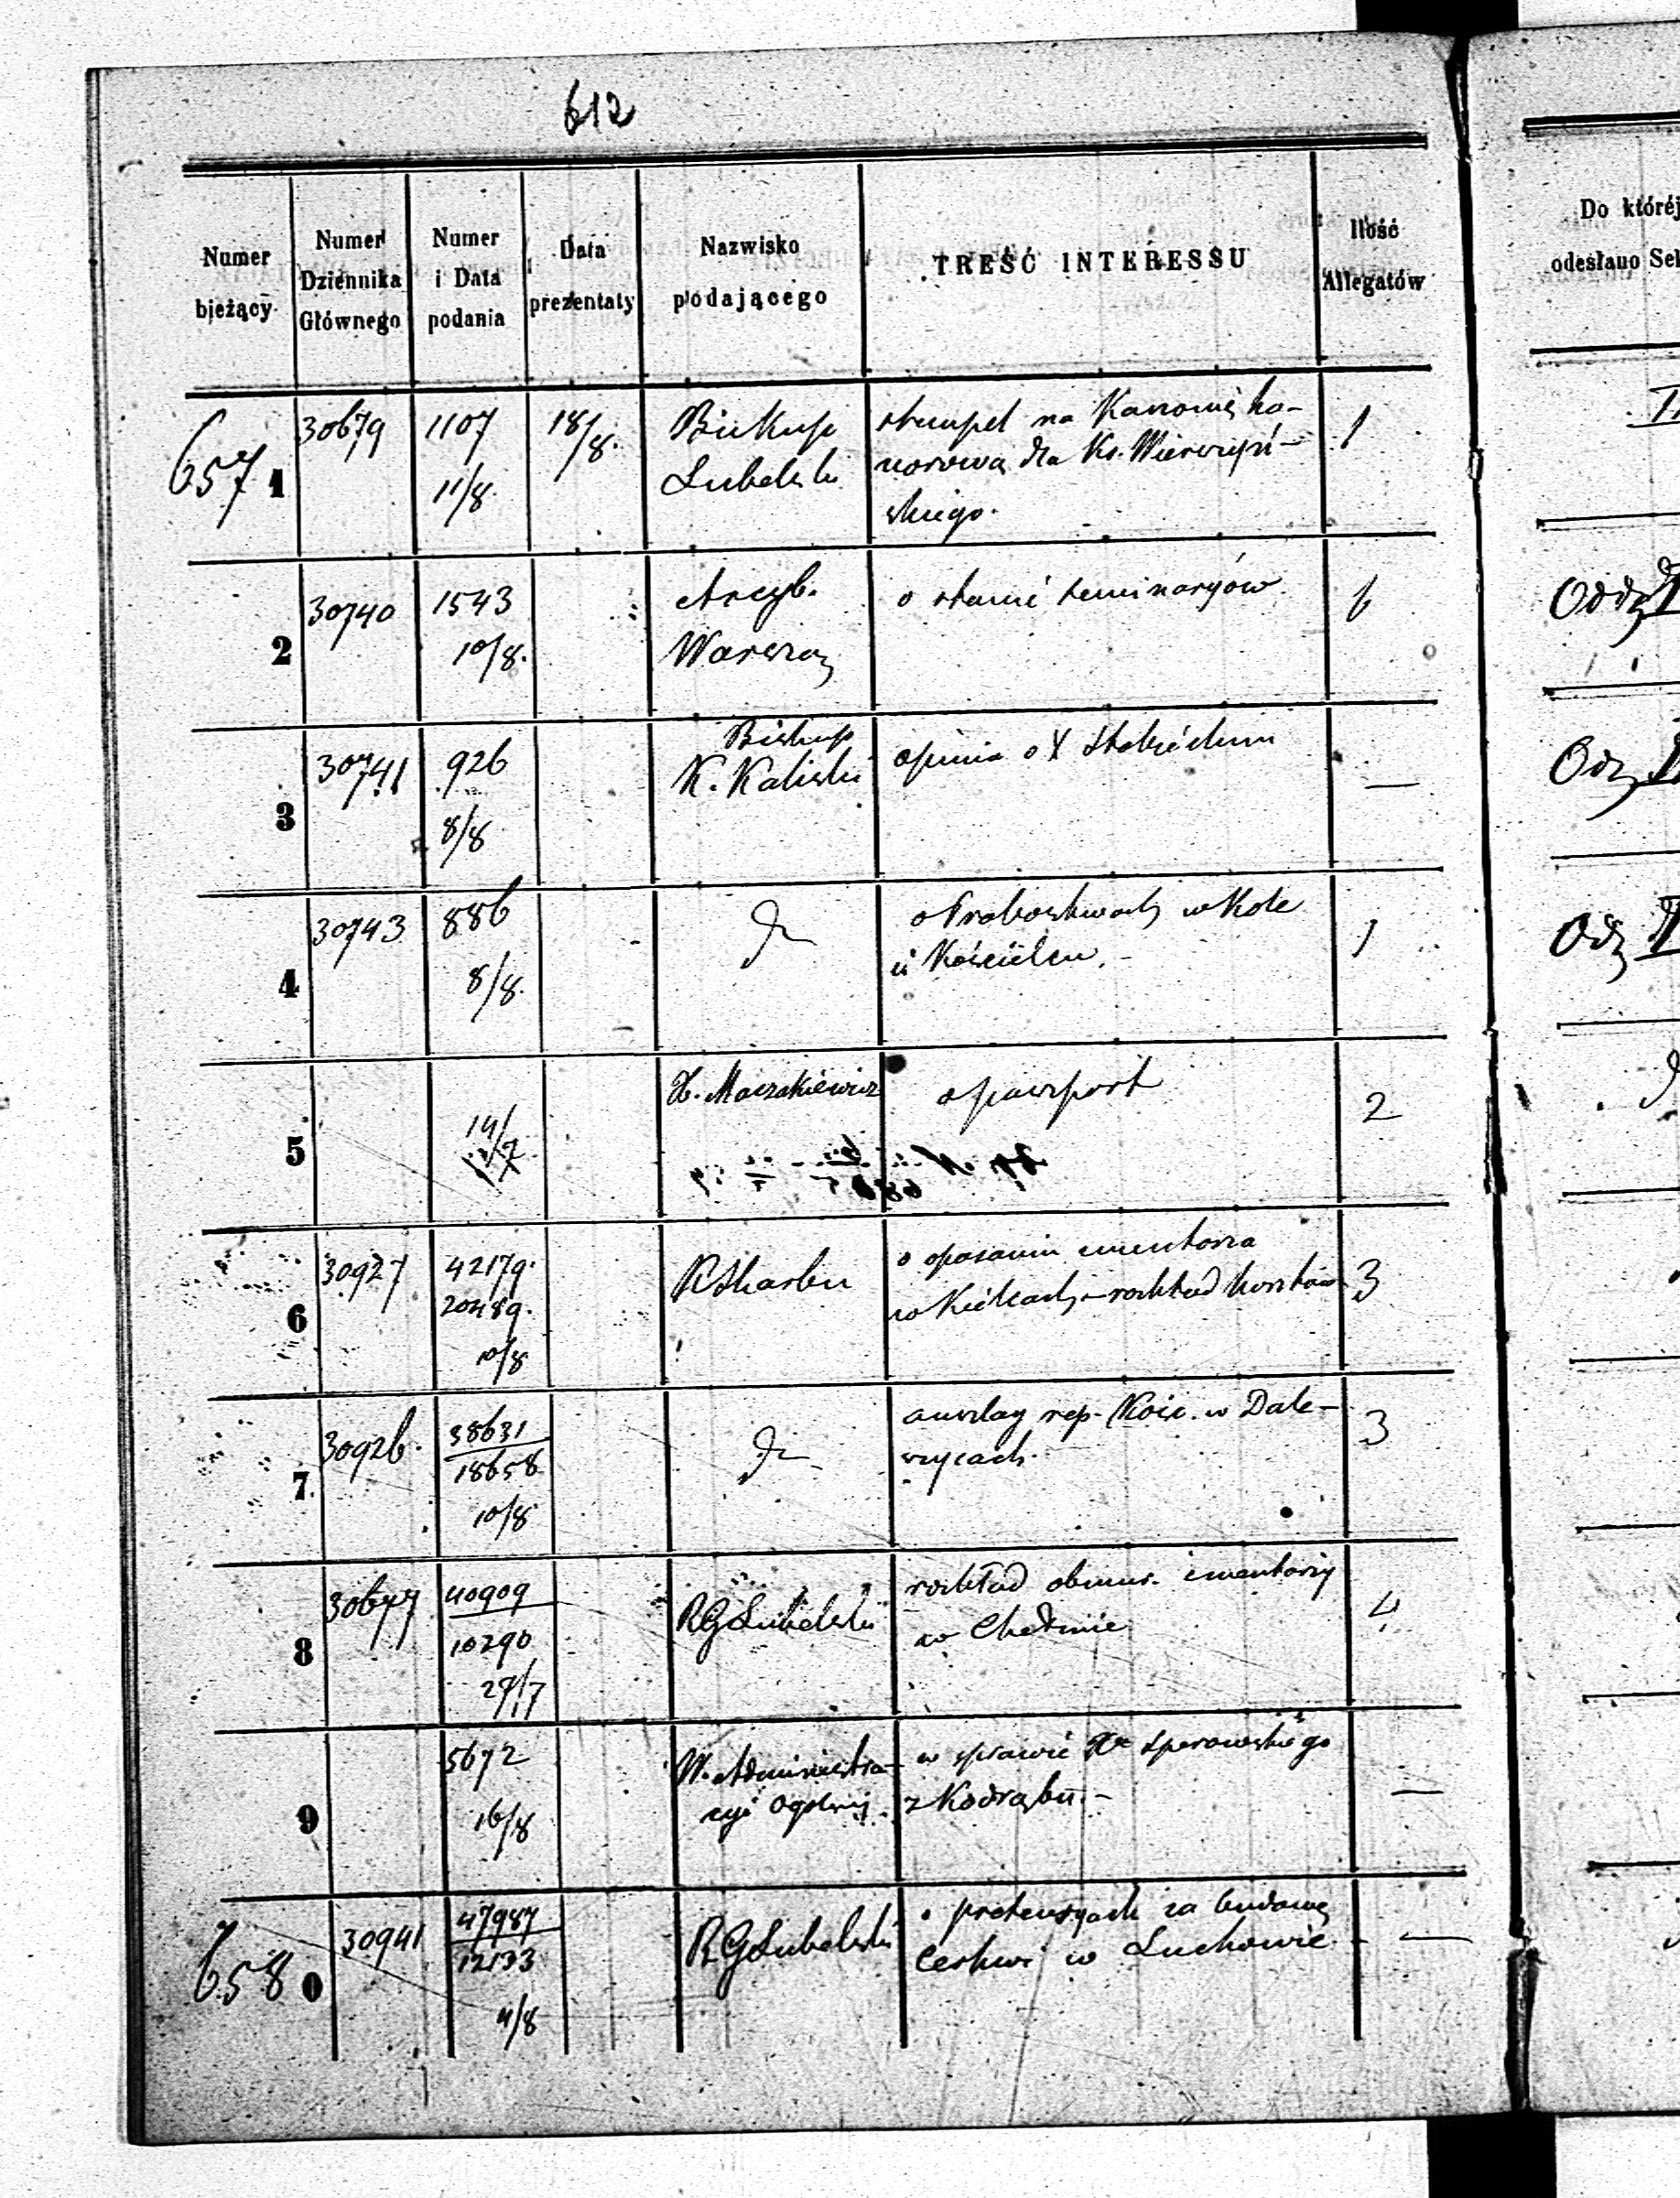 612
Numer bieżący
Numer Dziennika Głównego
Numer i Data podania
Data prezentaty
Nazwisko podającego
TREŚĆ INTERESSU
Ilość Allegatów
Do któréj
odesłano
6571
30679
1107
11/8.
18/8.
Biskup
Lubelski
stempel na Kanonię ho-
norową dla Ks.
skiego.
1
2
30740
1543
10/8.
Arcyb.
Warszaw
o stanie seminaryów
6
Odz
3
30741
926
8/8
Biskup
K. Kaliski
opinia o X
—
Odz
4
30743
886
8/8.
o Probostwach w Kole
i Kościelcu.
1
Odz II
5
X. Maczakiewicz
o paszport
2
6
30927
42179.
20489.
10/8
R Skarbu
o opasaniu cmentarza
w Kielcach, rozkład kosztów
3
7
30926.
38631
18658
10/8
anszlag rep. Kość. w Dale-
szycach.
3
8
30677
40909
10290
29/7
RGLubelski
rozkład obmur. cmentarzy
w Chełmie
4
9
5672
16/8
W. Administra-
cyi Ogólnej
w sprawie
z Kodrąbu.-
—
6580
30941
47987
12133
4/8
RGLubelski
o pretensyach za budowę
Cerkwi w Luchowie
—